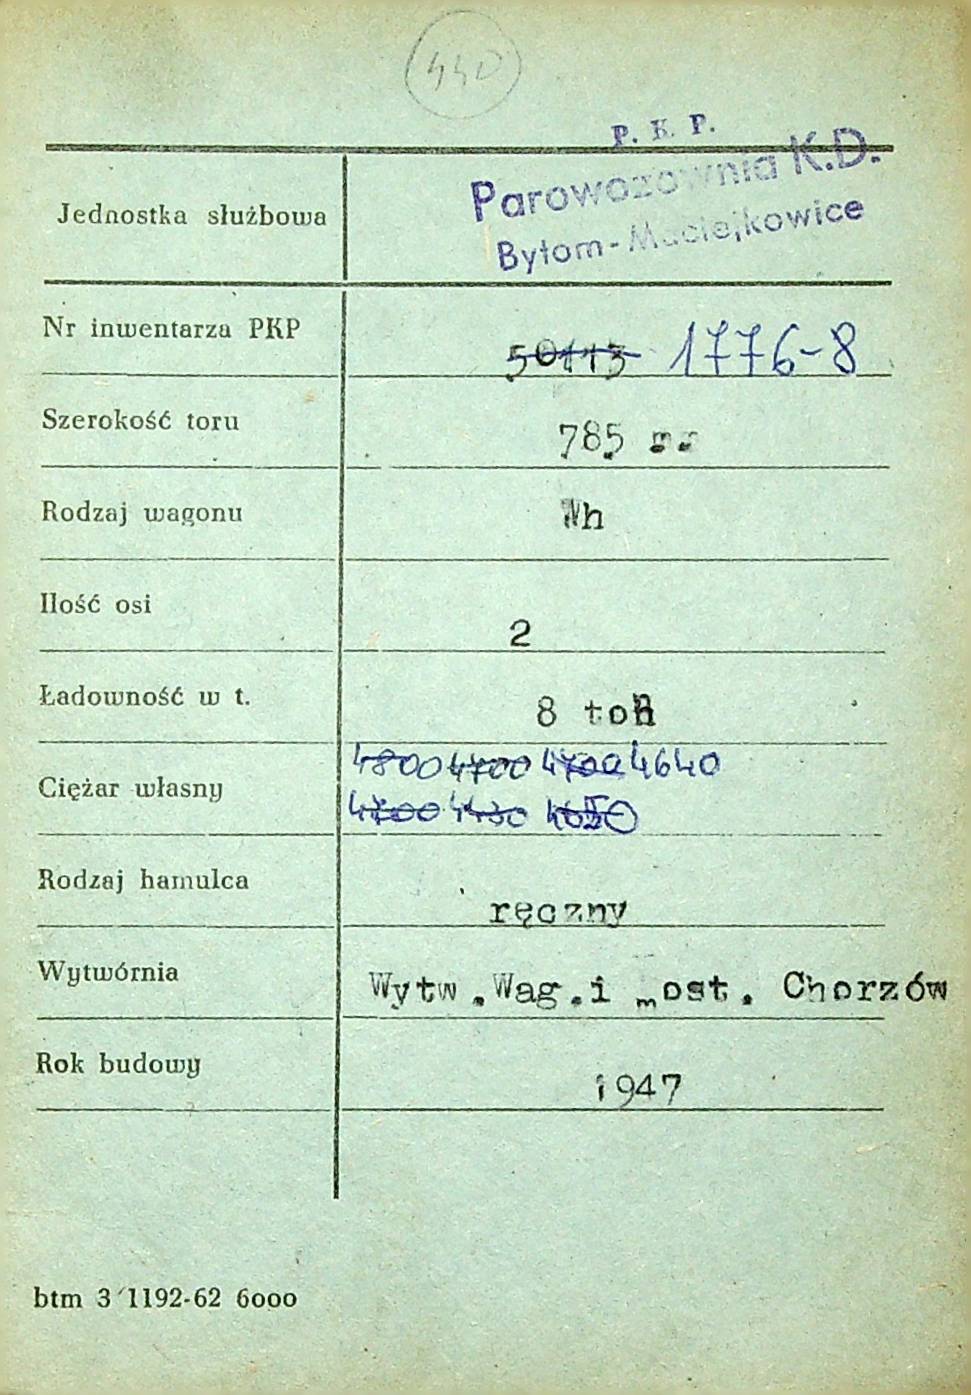 440
P. K. P.
Parowozownia K.D.
Jednostka służbowa
Bytom-Maciejkowice
Nr inwentarza PKP 50113 1776-8
Szerokość toru 785 mm
Rodzaj wagonu Wh
Ilość osi 2
Ładowność w t. 8 ton
4800 4700 4700 4640
Ciężar własny
4700 4430 4650
Rodzaj hamulca ręczny
Wytwórnia Wytw.Wag.i most. Chorzów
Rok budowy 1947
btm 3/1192-62 6000